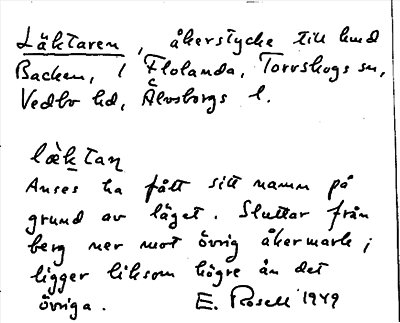 Läktaren, åkerstycke till hmd
Backen, 1 Flolanda, Torrskogs sn,
Vedbo hd, Älvsborgs l.
læ̀ktaṇ
Anses ha fått sitt namn på
grund av läget. Sluttar från
berg ner mot övrig åkermark;
ligger liksom högre än det
övriga. E. Rosell 1949